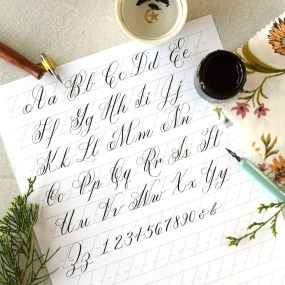 Aa Bb Cc Dd Ee
Ff Gg Hh Ii Jj
Kk Ll Mm Nn
Oo Pp Qq Rr Ss Tt
Uu Vv Ww Xx Yy
Zz 1234567890&